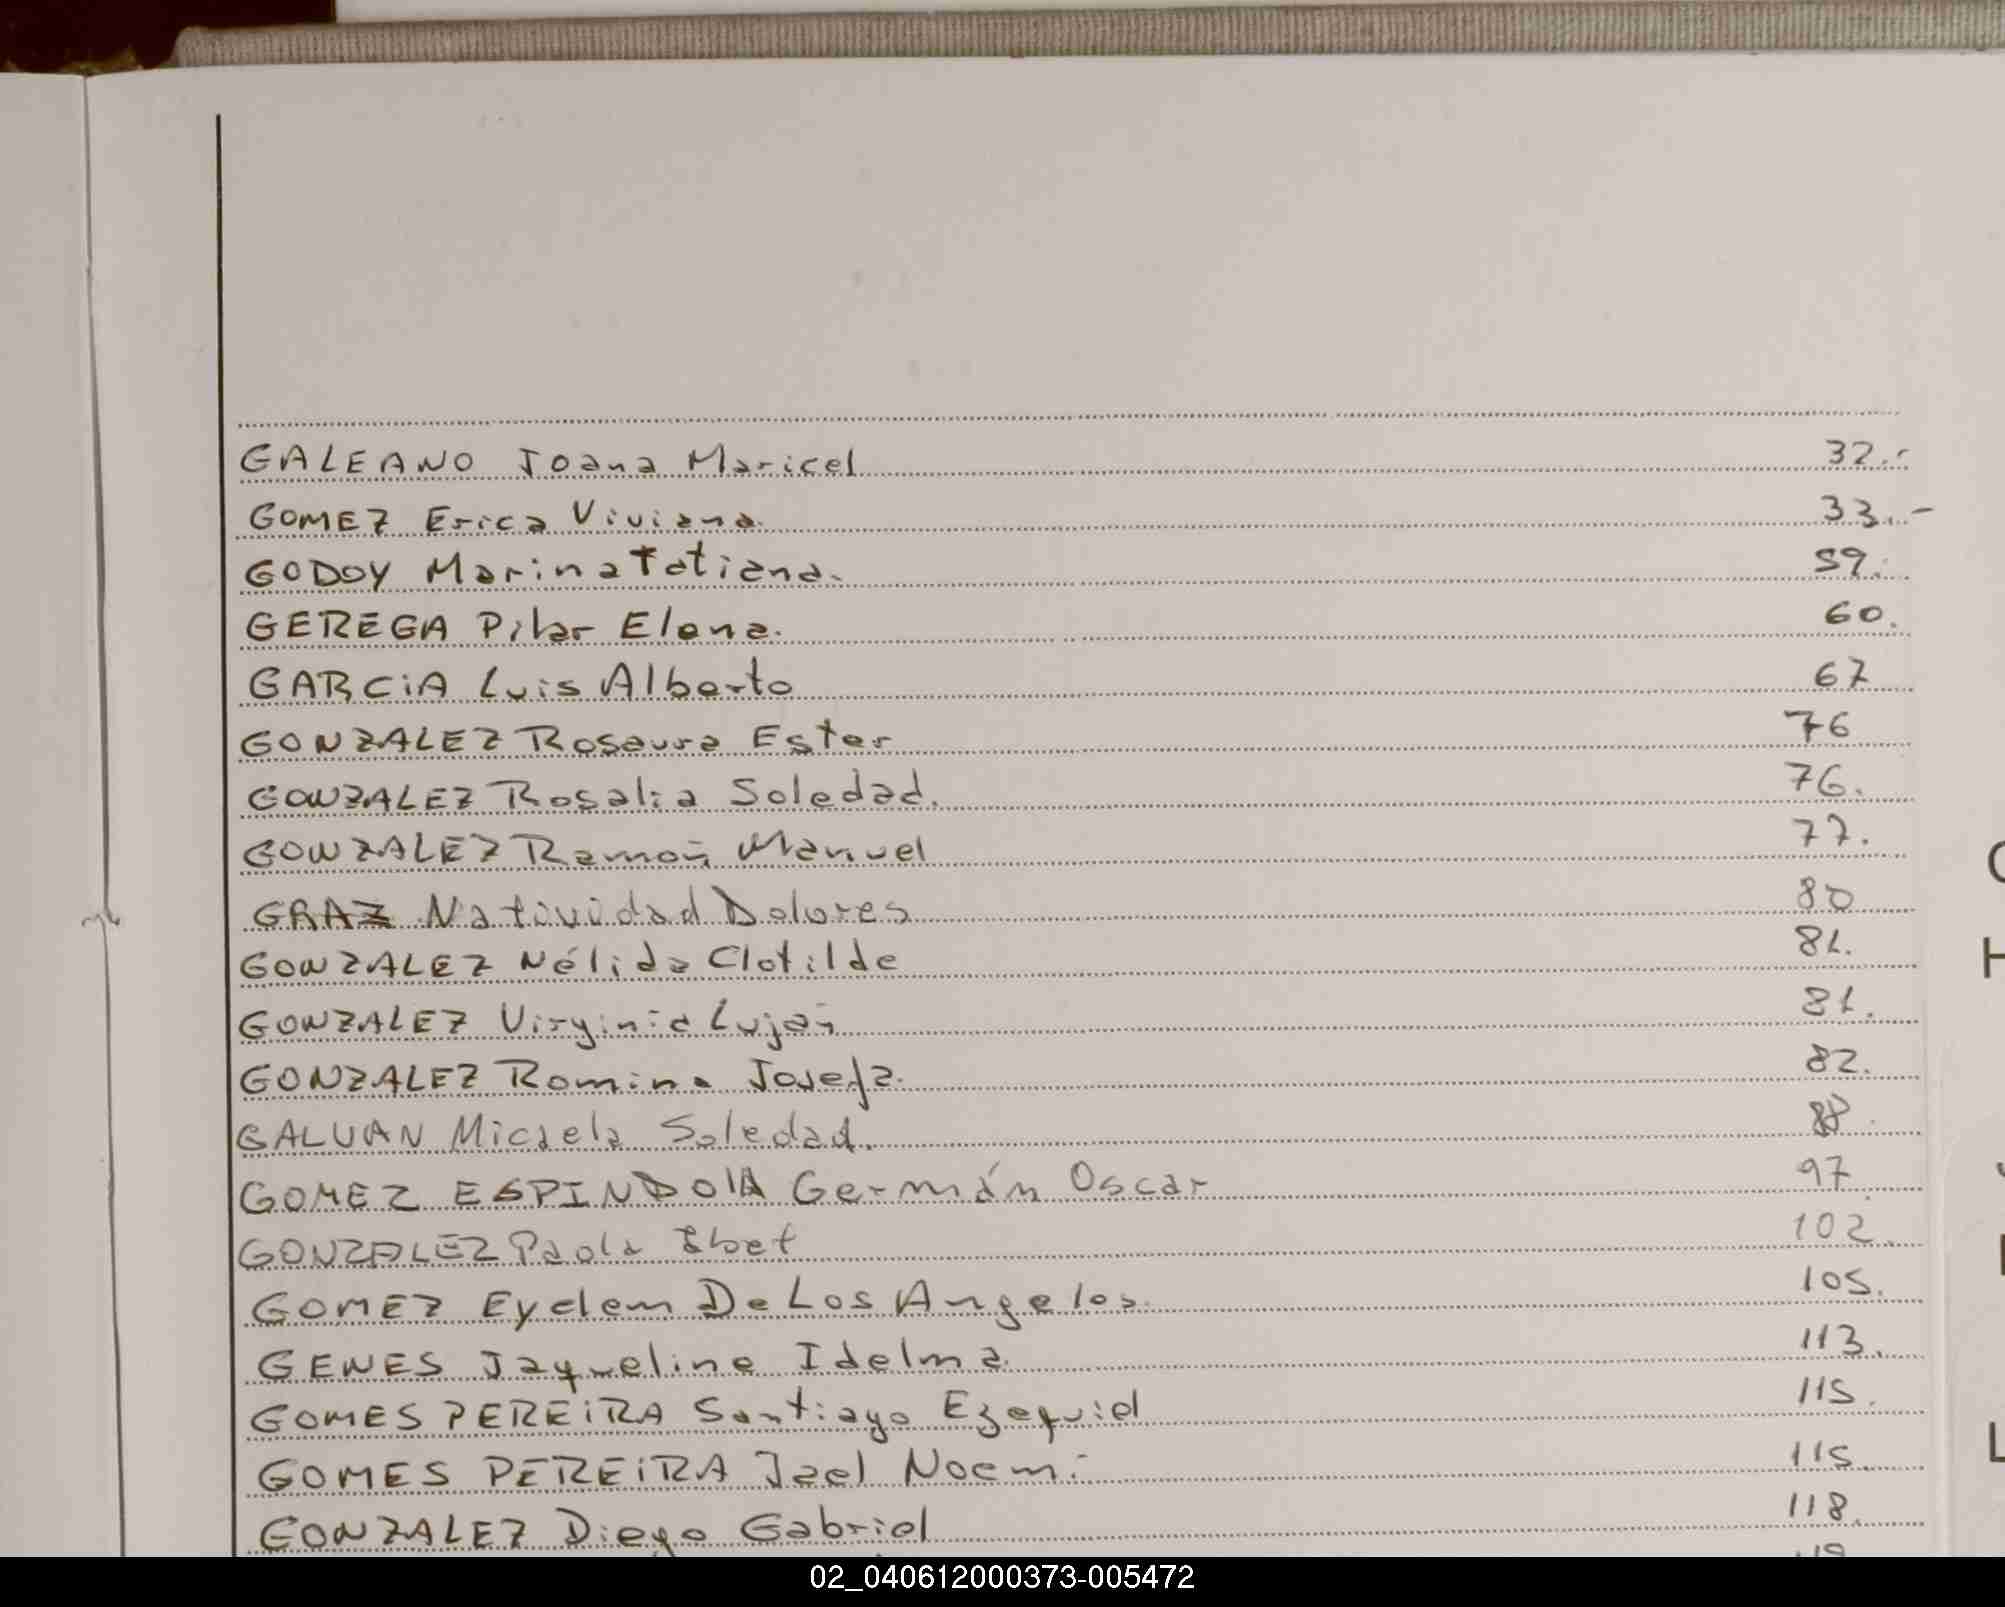 GALEANO Joana Maricel 32.-
GOMEZ Erica Viviana. 33.-
GODOY Marina Tatiana. 59.
GEREGA Pilar Elena. 60.
GARCiA Luis Alberto 67
GONZALEZ Rosaura Ester 76
GONZALEZ Rosalia Soledad. 76.
GONZALEZ Ramón Manuel 77.
Natividad Dolores 80
GONZALEZ Nélida Clotilde 81.
GONZALEZ Virginia Luján 81.
GONZALEZ Romina Josefa. 82.
GALVAN Micaela Soledad. 88.
GOMEZ ESPINDOlA Germán Oscar 97
GONZALEZ Paola 102.
GOMEZ Eyelem De Los Angeles. 105.
GENES Jaqueline Idelma. 113.
GOMES PEREiRA Santiago Ezequiel 115.
GOMES PEREiRA Jael Noemi 115.
GONZALEZ Diego Gabriel 118.
H
L
02_040612000373-005472